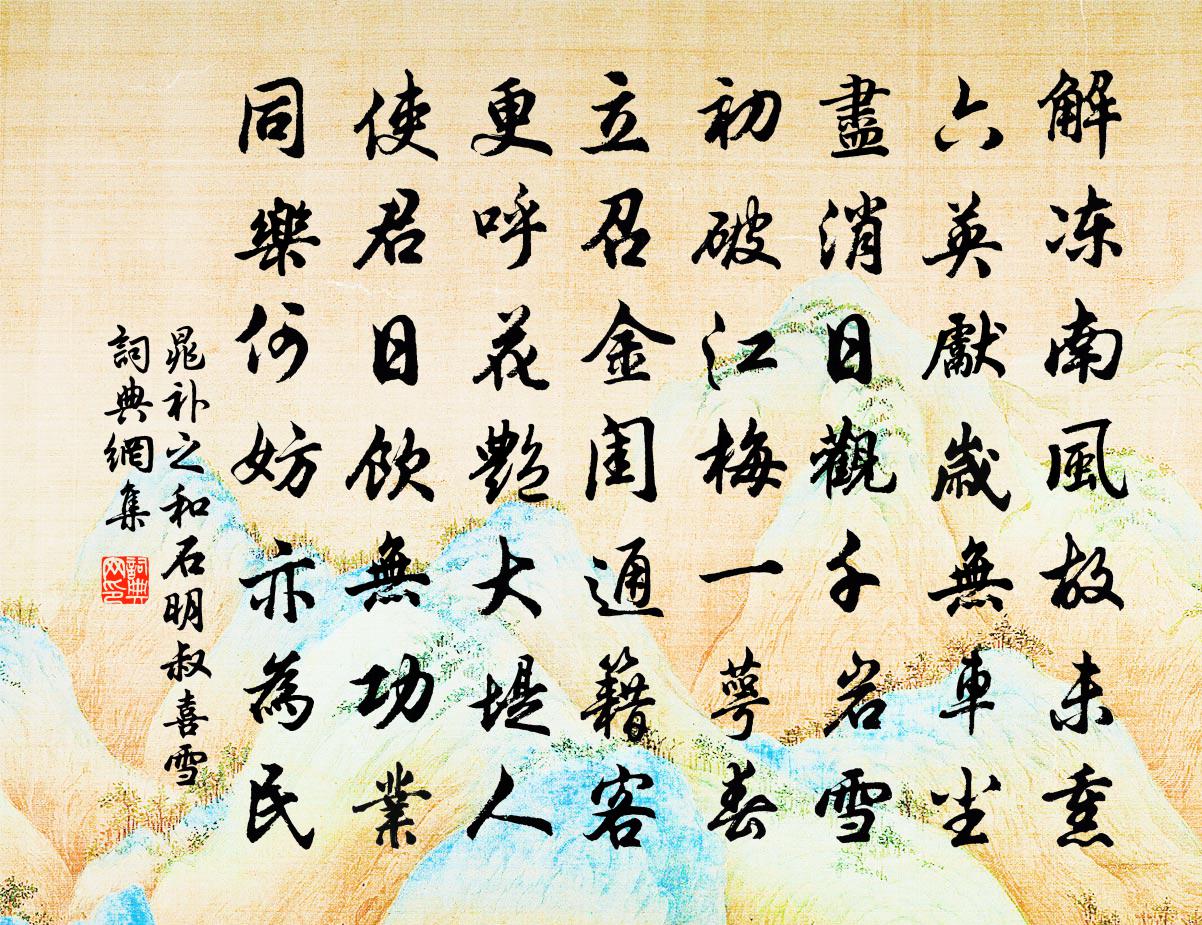 解冻南風故未熏
六英獻歲無車塵
盡消日觀千岩雪
初破江梅一萼春
立召金閨通籍客
更呼花艷大堤人
使君日飲無功業
同樂何妨亦為民
晁补之和石明叔喜雪
詞典網集
詞典网印